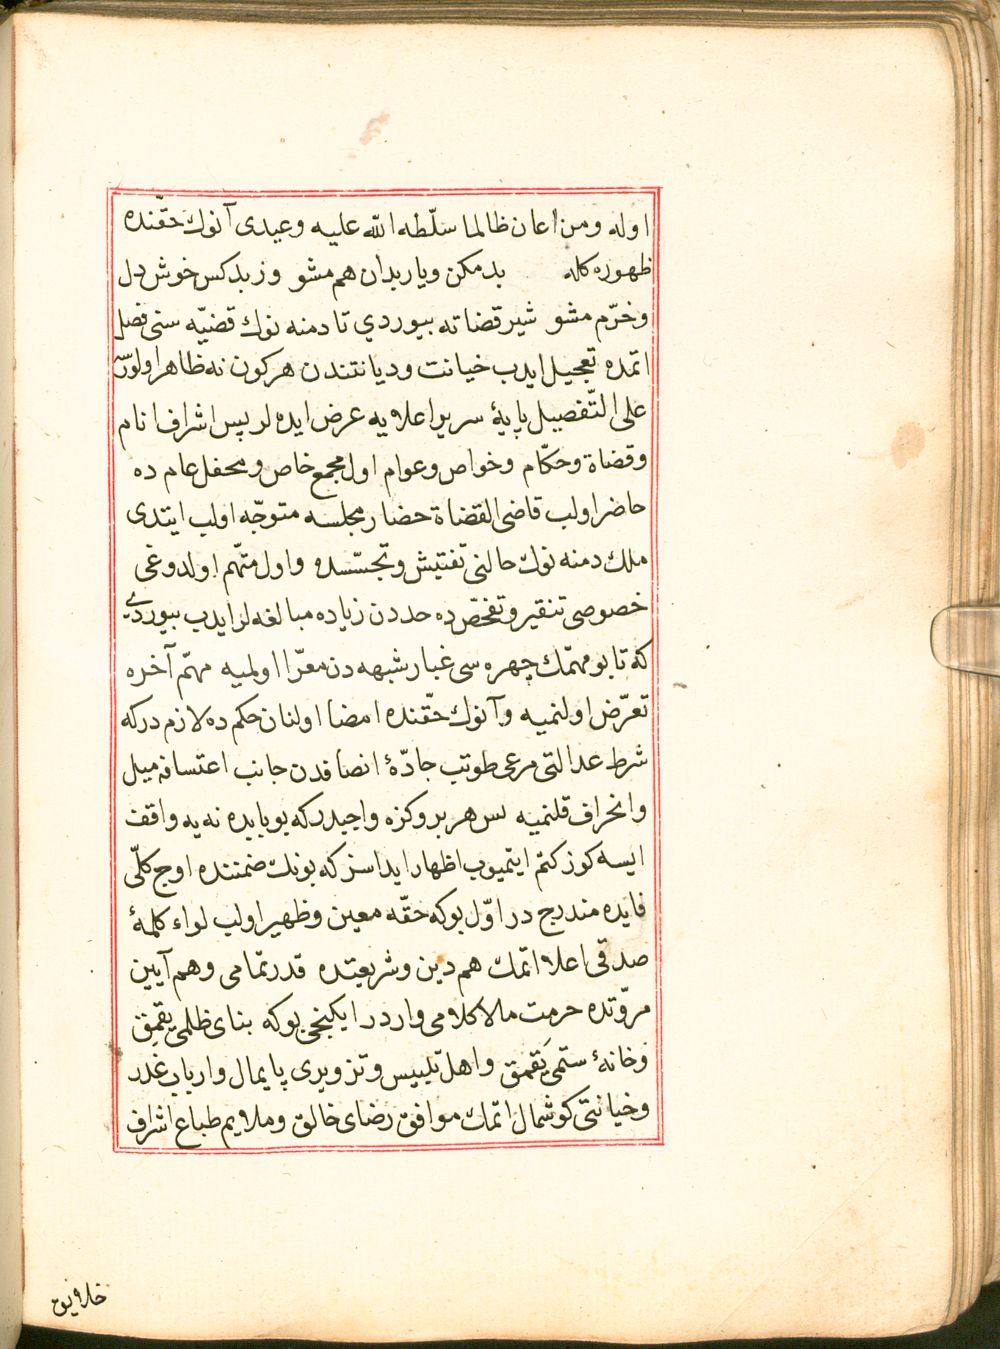 اوله ومن اعان ظالما سلّطه الله عليه وعيدى آنوك حقّنده
ظهوره كله بد مكن ويار بدان هم مشو وز بد كس خوش دل
وخرّم مشو شير قضاته بيوردي تا دمنه نوك قضيّه سنى فصل
اتمده تعجيل ايدب خيانت وديانتندن هركون نه ظاهر اولورسه
على التّفصيل پايۀ سرير اعلايه عرض ايده لر پس اشراف انام
وقضاة وحكّام وخواص وعوام اول مجمع خاص ومحفل عام ده
حاضر اولب قاضى القضاة حضار مجلسه متوجّه اولب ايتدى
ملك دمنه نوك حالنى تفتيش وتجسّسده واول متّهم اولدوغى
خصوصى تنقير وتفحّص ده حددن زياده مبالغه لر ايدب بيوردى
كه تا بو مهمّك چهره سى غبار شبهه دن معرّا اولميه مهمّ آخره
تعرّض اولنميه وآنوك حقّنده امضا اولنان حكم ده لازم دركه
شرط عدالتى مرعى طوتب جادّۀ انصافدن جانب اعتسافه ميل
وانحراف قلنميه پس هر بروكزه واجبدركه بو بابده نه يه واقف
ايسه كوز كتم ايتميوب اظهار ايداسز كه بونك ضمننده اوچ كلّى
فايده مندرج در اوّل بوكه حقّه معين وظهير اولب لواء كلمۀ
صدقى اعلا اتمك هم دين وشريعتده قدر تمامى وهم آيين
مروّتده حرمت مالاكلامى واردر ايكنجى بوكه بناى ظلمى يقمق
وخانۀ ستمى يقمق واهل تلبيس وتزويرى پايمال وارباب غدر
وخيانتى كوشمال اتمك موافق رضاى خالق وملايم طباع اشراف
خلايق